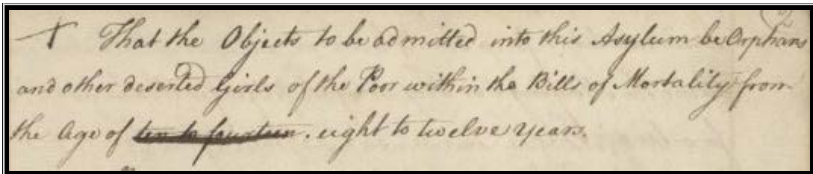 + That the Objects to be admitted into this Asylum be Orphans
and other deserted Girls of the Poor within the Bills of Mortality from
the Age of ten to fourteen. eight to twelve years.